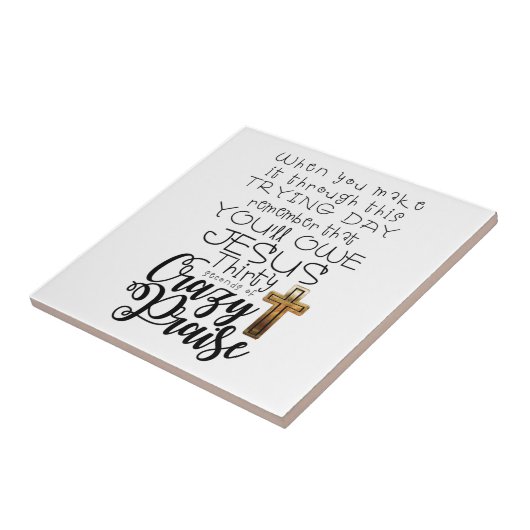 When you make
it through this
TRYING DAY
remember that
YOU'll OWE
JESUS
Thirty
seconds of
Crazy
Praise